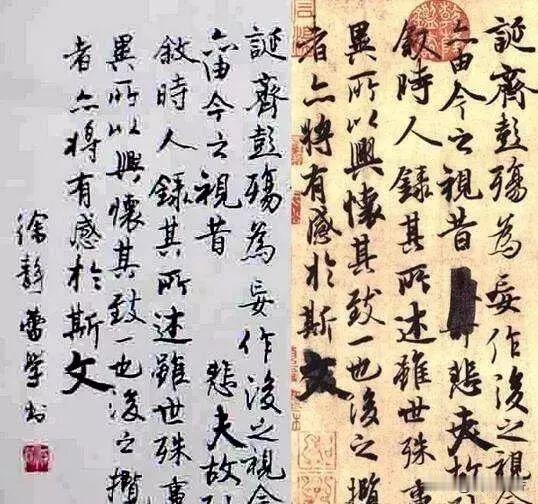 誕齊彭殤為妄作後之視今
亦由今之視昔悲夫故列
敘時人錄其所述雖世殊事
異所以興懷其致一也後之攬
者亦將有感於斯文
徐靜蕾學书
誕齊彭殤為妄作後之視今
亦由今之視昔悲夫故列
敘時人錄其所述雖世殊事
異所以興懷其致一也後之攬
者亦將有感於斯文